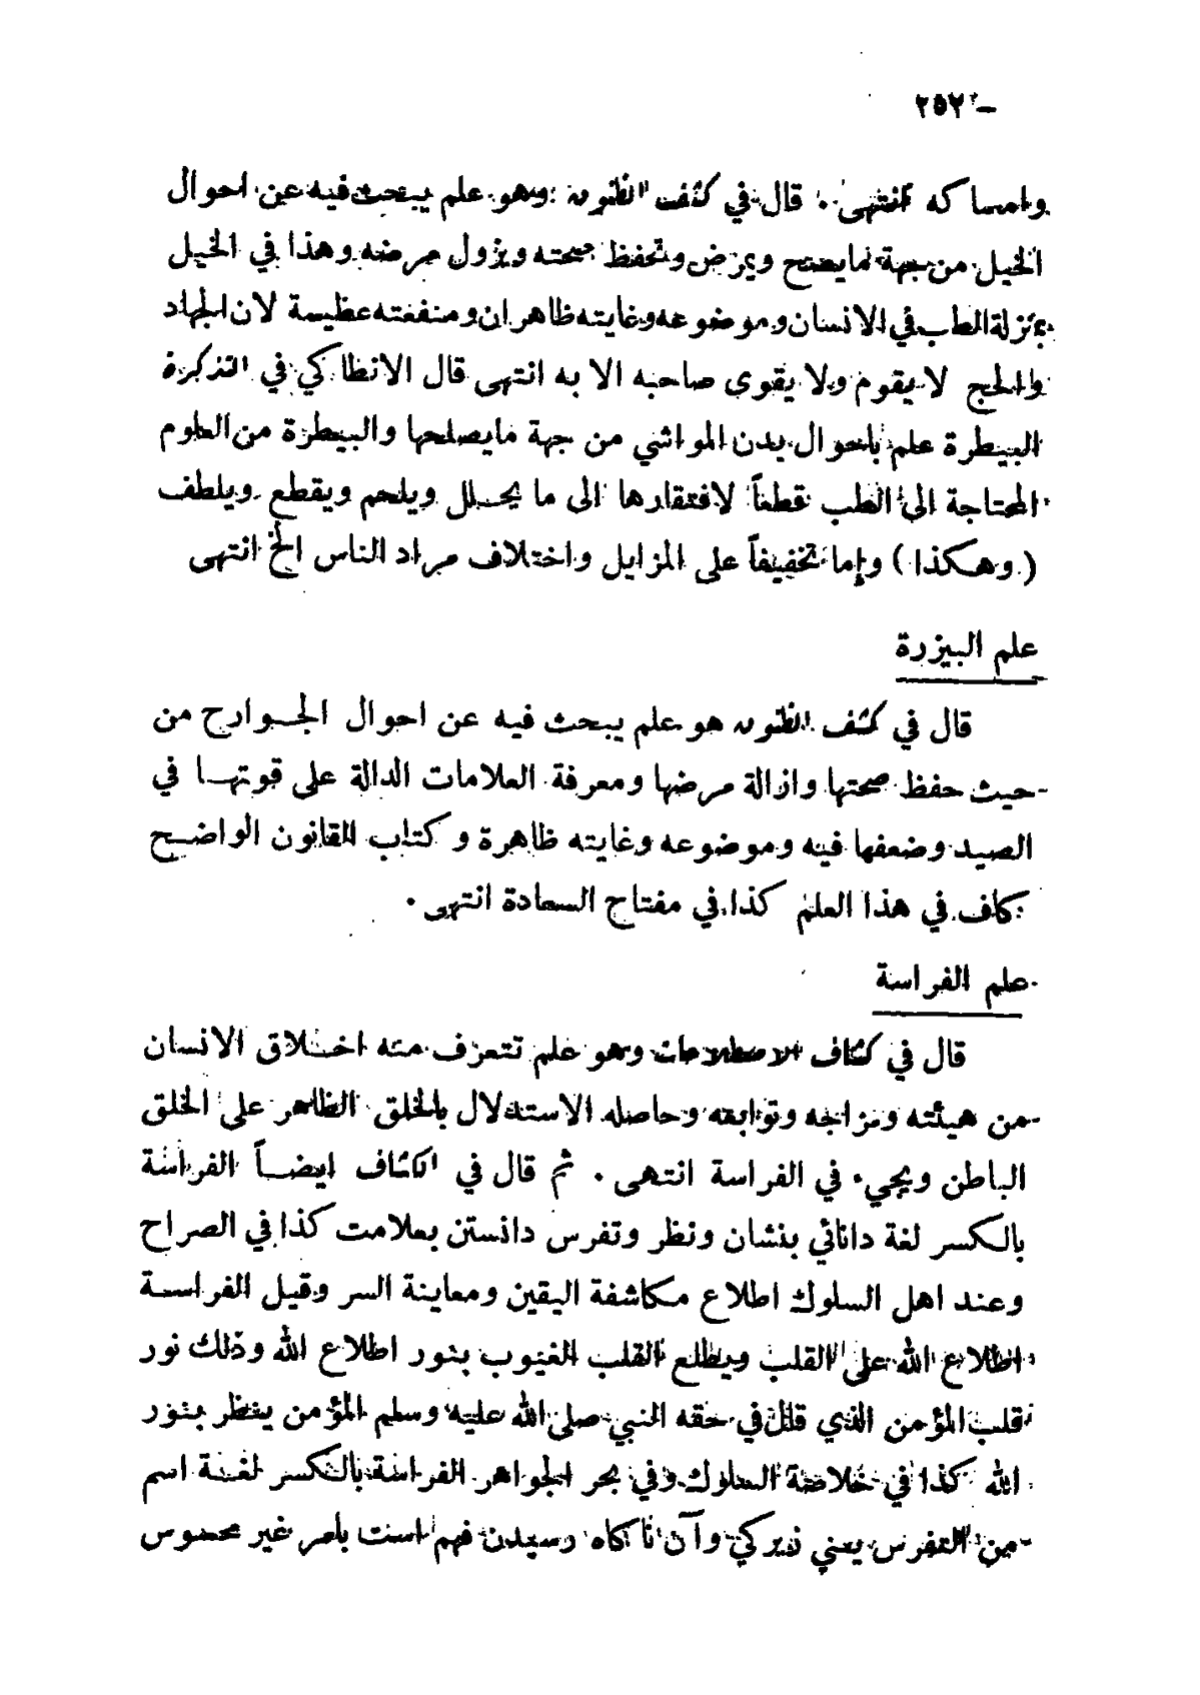 ٢٥٢ -
وامساكه انتهى . قال في كشف الظنون وهو علم يبحث فيه عن احوال
الخيل من جهة مايصح ويمرض وتحفظ صحته ويزول مرضه وهذا في الخيل
بمنزلة الطب في الانسان وموضوعه وغايته ظاهران ومنفعته عظيمة لان الجهاد
والحج لا يقوم ولا يقوى صاحبه الا به انتهى قال الانطاكي في التذكرة
البيطرة علم باحوال بدن المواشي من جهة مايصلحها والبيطرة من العلوم
المحتاجة الى الطب قطعاً لافتقارها الى ما يحلل ويلحم ويقطع ويلطف
( وهكذا ) وإما تخفيفاً على المزايل واختلاف مراد الناس الخ انتهى
علم البيزرة
قال في كشف الظنون هو علم يبحث فيه عن احوال الجوارح من
حيث حفظ صحتها وازالة مرضها ومعرفة العلامات الدالة على قوتها في
الصيد وضعفها فيه وموضوعه وغايته ظاهرة وكتاب القانون الواضح
كاف في هذا العلم كذا في مفتاح السعادة انتهى .
علم الفراسة
قال في كشاف الاصطلاحات وهو علم تتعرف منه اخلاق الانسان
من هيئته ومزاجه وتوابعه وحاصله الاستدلال بالخلق الظاهر على الخلق
الباطن ويجيء في الفراسة انتهى . ثم قال في الكشاف ايضاً الفراسة
بالكسر لغة دانائي بنشان ونظر وتفرس دانستن بعلامت كذا في الصراح
وعند اهل السلوك اطلاع مكاشفة اليقين ومعاينة السر وقيل الفراسة
اطلاع الله على القلب ويطلع القلب الغيوب بنور اطلاع الله وذلك نور
قلب المؤمن الذي قال في حقه النبي صلى الله عليه وسلم المؤمن ينظر بنور
الله كذا في خلاصة السلوك وفي بحر الجواهر الفراسة بالكسر لغة اسم
من التفرس يعني زيركي وآن ناكاه رسيدن فهم است بامر غير محسوس